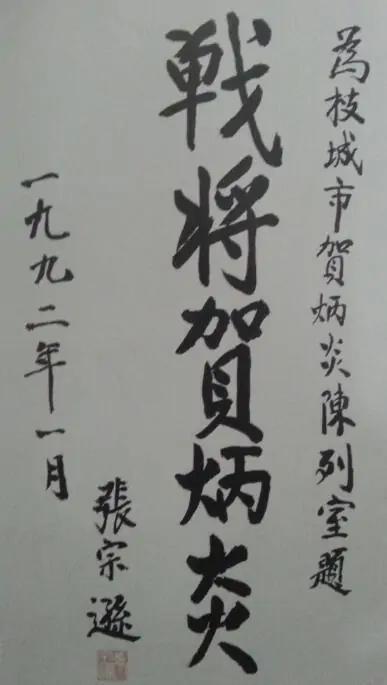 为枝城市賀炳炎陳列室題
戦将賀炳炎
一九九二年一月
張宗遜